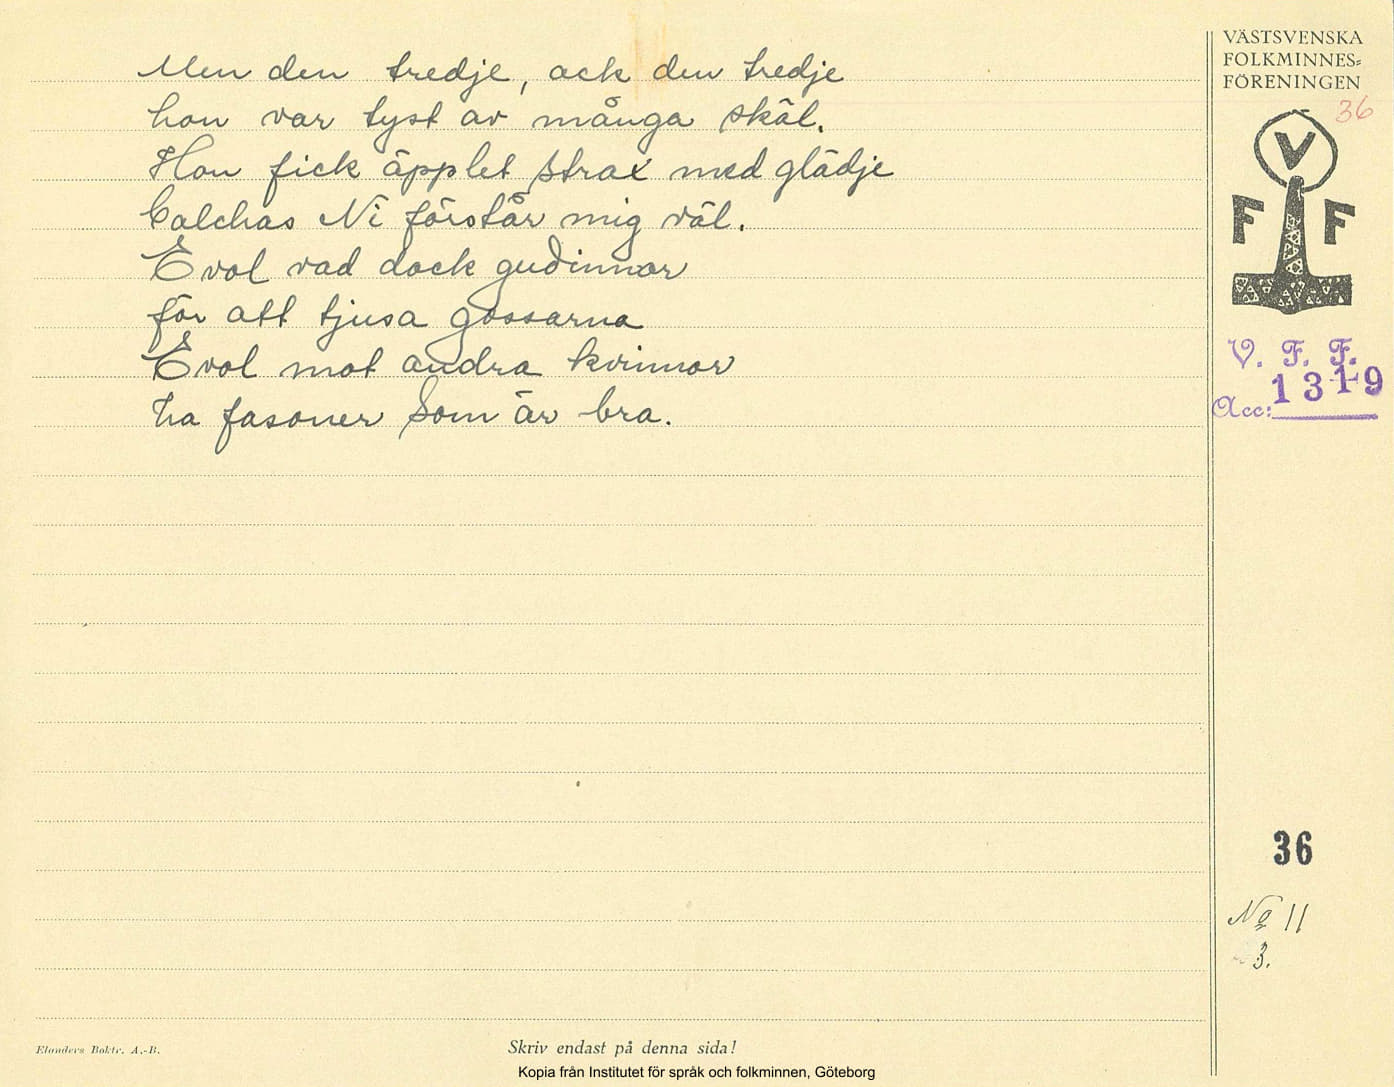 Men den tredje, ack den tredje
hon var tyst av många skäl.
Hon fick äpplet strax med glädje
Calchas Ni förstår mig väl.
Evol vad dock gudinnor
för att tjusa gossarna
Evol mot andra kvinnor
ha fasoner som är bra.
VÄSTSVENSKA
FOLKMINNES-
FÖRENINGEN
36
V
F F
V. F. F.
Acc: 1319
36
No 11
3.
Elanders Boktr. A.-B.
Skriv endast på denna sida!
Kopia från Institutet för språk och folkminnen, Göteborg